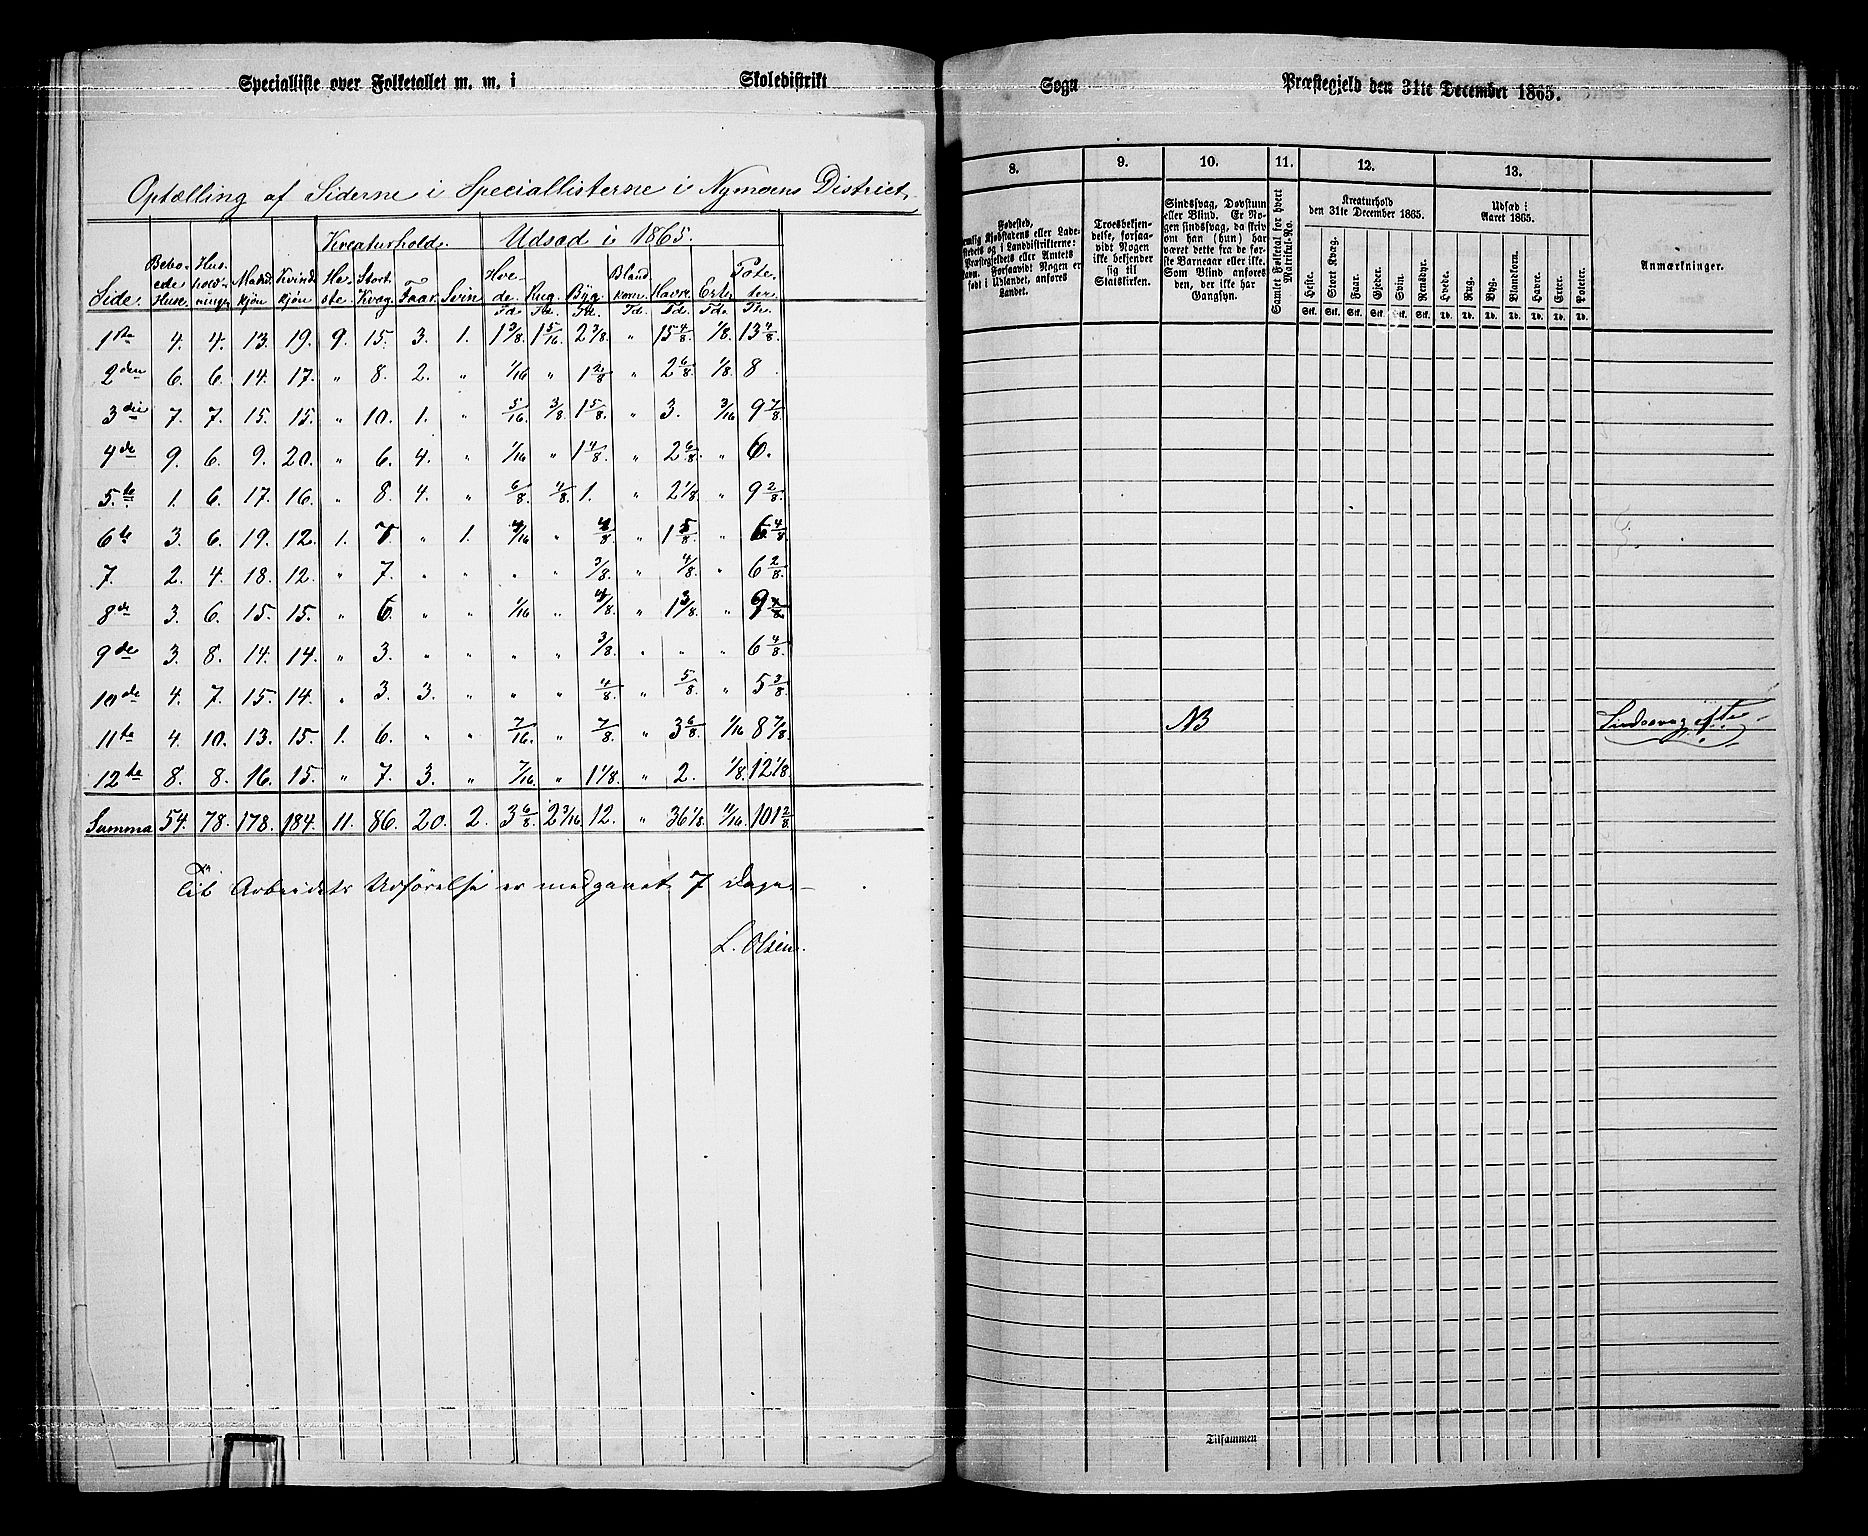 Specialliste over Folketallet m. m. i Skoledistrikt
Optælling af Siderne i Speciallisterne i Nymoens District.
Kreaturhold. Udsæd i 1865.
Side. Beboede Huse. Husholdninger Mandkjøn Kvindekjøn Heste. Stort Kvæg. Faar. Svin Hvede. Tdr Rug. Td. Byg. Td. Blandkorn. Td. Havre. Td. Erter. Td. Poteter. Td.
1ste 4. 4. 13. 19. 9. 15. 3. 1. 1 3/8. 1 5/16. 2 3/8. " 15 4/8. 1/8. 13 4/8.
2den 6. 6. 14. 17. " 8. 2. " 1/16 " 1 2/8. " 2 6/8. 1/8. 8.
3die 7. 7. 15. 15. " 10. 1. " 5/16. 3/8. 1 5/8. " 3. 3/16 9 7/8.
4de 9. 6. 9. 20. " 6. 4. " 1/16 " 1 4/8. " 2 6/8. " 6.
5te 1. 6. 17. 16. " 8. 4. " 6/8. 4/8. 1. " 2 1/8. " 9 2/8.
6te 3. 6. 19. 12. 1. 7. " 1. 4/16 " 4/8. " 1 5/8. " 6 4/8.
7. 2. 4. 18. 12. " 7. " " " " 3/8. " 4/8. " 6 2/8.
8de 3. 6. 15. 15. " 6. " " 1/16 " 4/8. " 1 3/8. " 9
9de 3. 8. 14. 14. " 3. " " " " 3/8. " " " 6 4/8.
10de 4. 7. 15. 14. " 3. 3. " " " 4/8. " 5/8. " 5 3/8.
11te 4. 10. 13. 15. 1. 6. " " 7/16. " 7/8. " 3 6/8. 1/16 8 7/8.
12te 8. 8. 16. 15. " 7. 3. " 7/16. " 1 1/8. " 2. 1/8. 12 1/8.
Summa 54. 78. 178. 184. 11. 86. 20. 2. 3 6/8. 2 3/16. 12. " 36 1/8. 11/16. 101 2/8.
Til Arbeidets Udførelse er medgaaet 7 Dage
L. Olsen.
Sogn Præstegjeld den 31te December 1865.
8. 9. 10. 11. 12. 13.
Fødested,
nemlig Kjøbstadens eller Lade-
stedets og i Landdistrikterne:
Præstegjeldets eller Amtets
Navn. Forsaavidt Nogen er
født i Udlandet, anføres
Landet.
Troesbekjen-
delse, forsaa-
vidt Nogen
ikke bekjender
sig til
Statskirken.
Sindssvag, Døvstum
eller Blind. Er No-
gen sindssvag, da skriv
om han (hun) har
været dette fra de før-
ste Barneaar eller ikke.
Som Blind anføres
den, der ikke har
Gangsyn.
Samlet Folketal for hvert
Matrikul-No.
Kreaturhold
den 31te December 1865.
Heste. Stort Kvæg. Faar. Gjeder. Svin. Rensdyr.
Stk. Stk. Stk. Stk. Stk. Stk.
Udsæd i
Aaret 1865.
Hvede. Rug. Byg. Blandkorn. Havre. Erter. Poteter.
Td. Td. Td. Td. Td. Td. Td.
Anmærkninger.
NB
Tilsammen